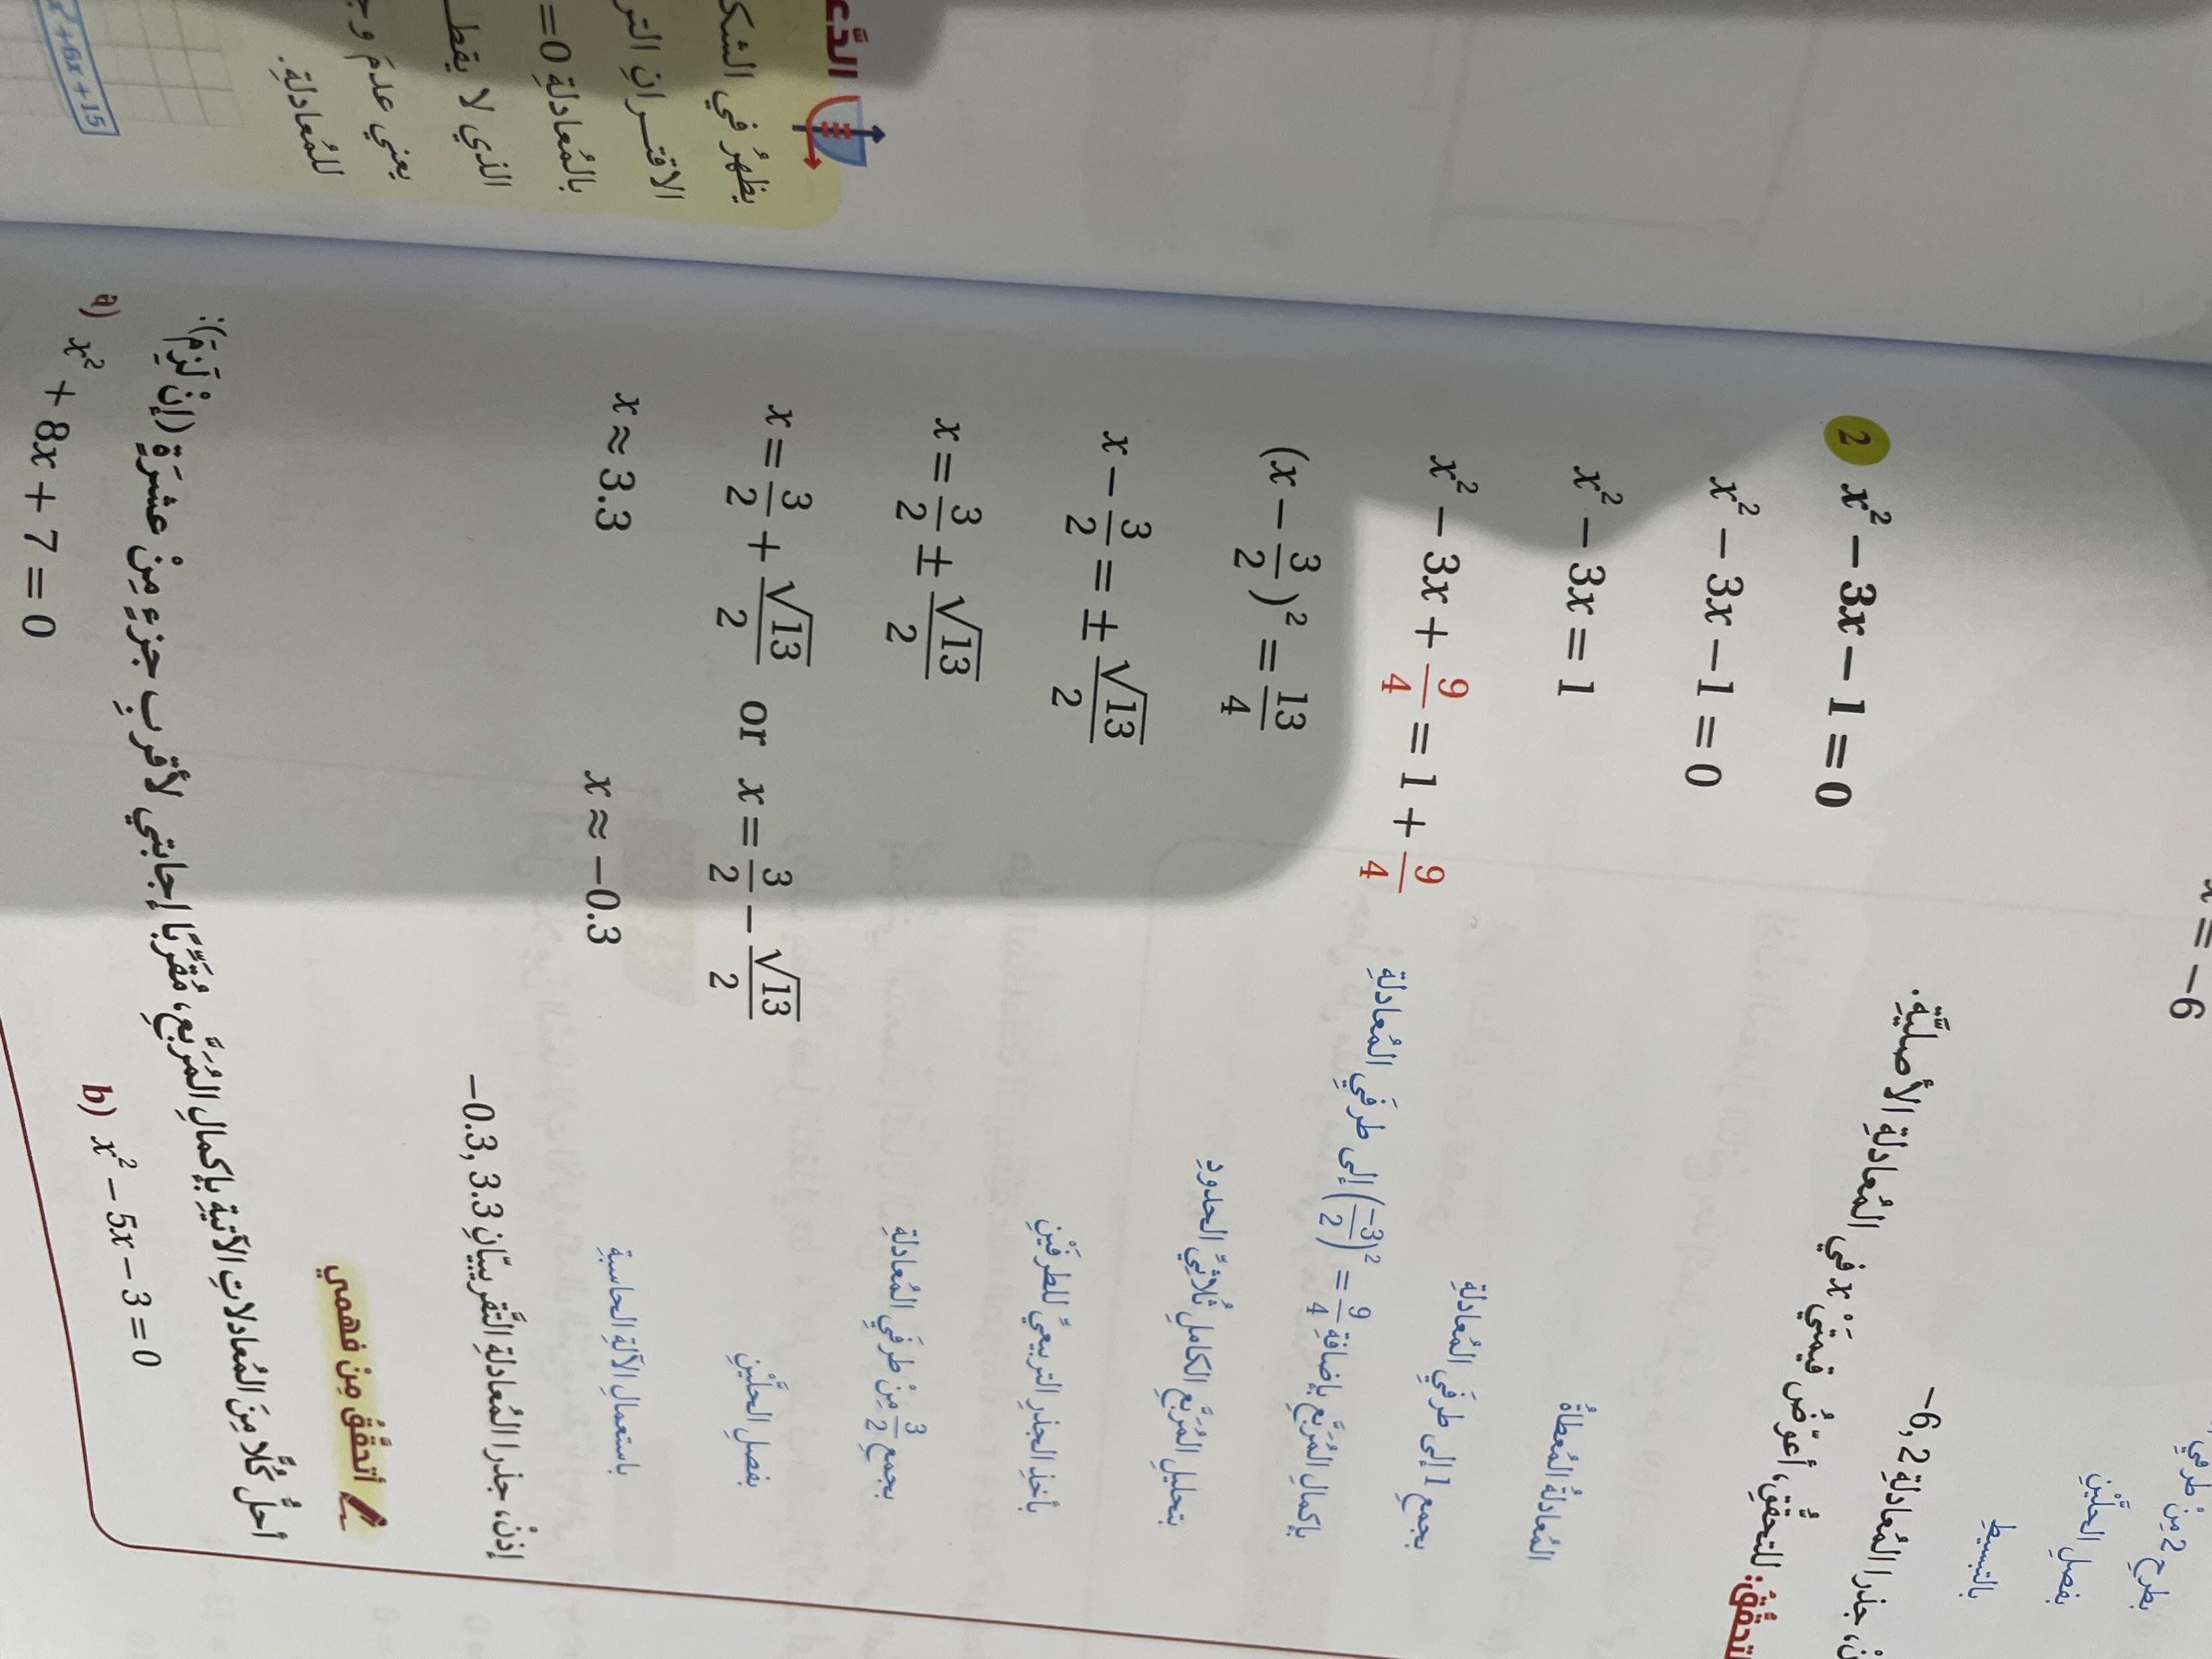 x = −6
بطرحِ 2 مِنْ طرفيِ
بفصلِ الحلَّيْنِ
بالتبسيطِ
جذرا المُعادلةِ 2 ,6−
تحقُّقُ: للتحقُّقِ، أُعوِّضُ قيمتَيْ x في المُعادلةِ الأصليَّةِ.
2 x² − 3x − 1 = 0
x² − 3x − 1 = 0 المُعادلةُ المُعطاةُ
x² − 3x = 1 بجمعِ 1 إلى طرفَيِ المُعادلةِ
x² − 3x + 9/4 = 1 + 9/4 بإكمالِ المُربَّعِ بإضافةِ (−3/2)² = 9/4 إلى طرفَيِ المُعادلةِ
(x − 3/2)² = 13/4 بتحليلِ المُربَّعِ الكاملِ ثُلاثيِّ الحدودِ
x − 3/2 = ± √13/2 بأخذِ الجذرِ التربيعيِّ للطرفَيْنِ
x = 3/2 ± √13/2 بجمعِ 3/2 مِنْ طرفَيِ المُعادلةِ
x = 3/2 + √13/2 or x = 3/2 − √13/2 بفصلِ الحلَّيْنِ
x ≈ 3.3 x ≈ −0.3 باستعمالِ الآلةِ الحاسبةِ
إذنْ، جذرا المُعادلةِ التَّقريبيّانِ 3.3 ,0.3−
أتحقَّقُ مِنْ فهمي
أحلُّ كُلًّا مِنَ المُعادلاتِ الآتيةِ بإكمالِ المُربَّعِ، مُقرِّبًا إجابتي لأقربِ جزءٍ مِنْ عشرَةٍ (إنْ لَزِمَ):
a) x² + 8x + 7 = 0 b) x² − 5x − 3 = 0
الدَّ
يظهرُ في الشك
الاقترانِ التر
بالمُعادلةِ 0=
الذي لا يقط
يعني عدمَ وج
للمُعادلةِ.
x² + 6x + 15